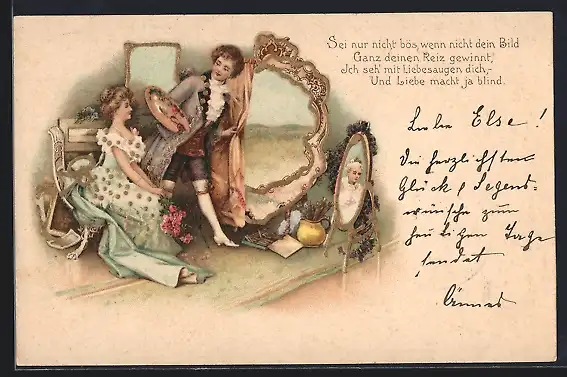 Sei nur nicht bös, wenn nicht dein Bild
Ganz deinen Reiz gewinnt,
Ich seh' mit Liebesaugen dich,-
Und Liebe macht ja blind.
Liebe Else!
Die herzlichsten
Glück & Segens-
wünsche zum
heutigen Tage
sendet